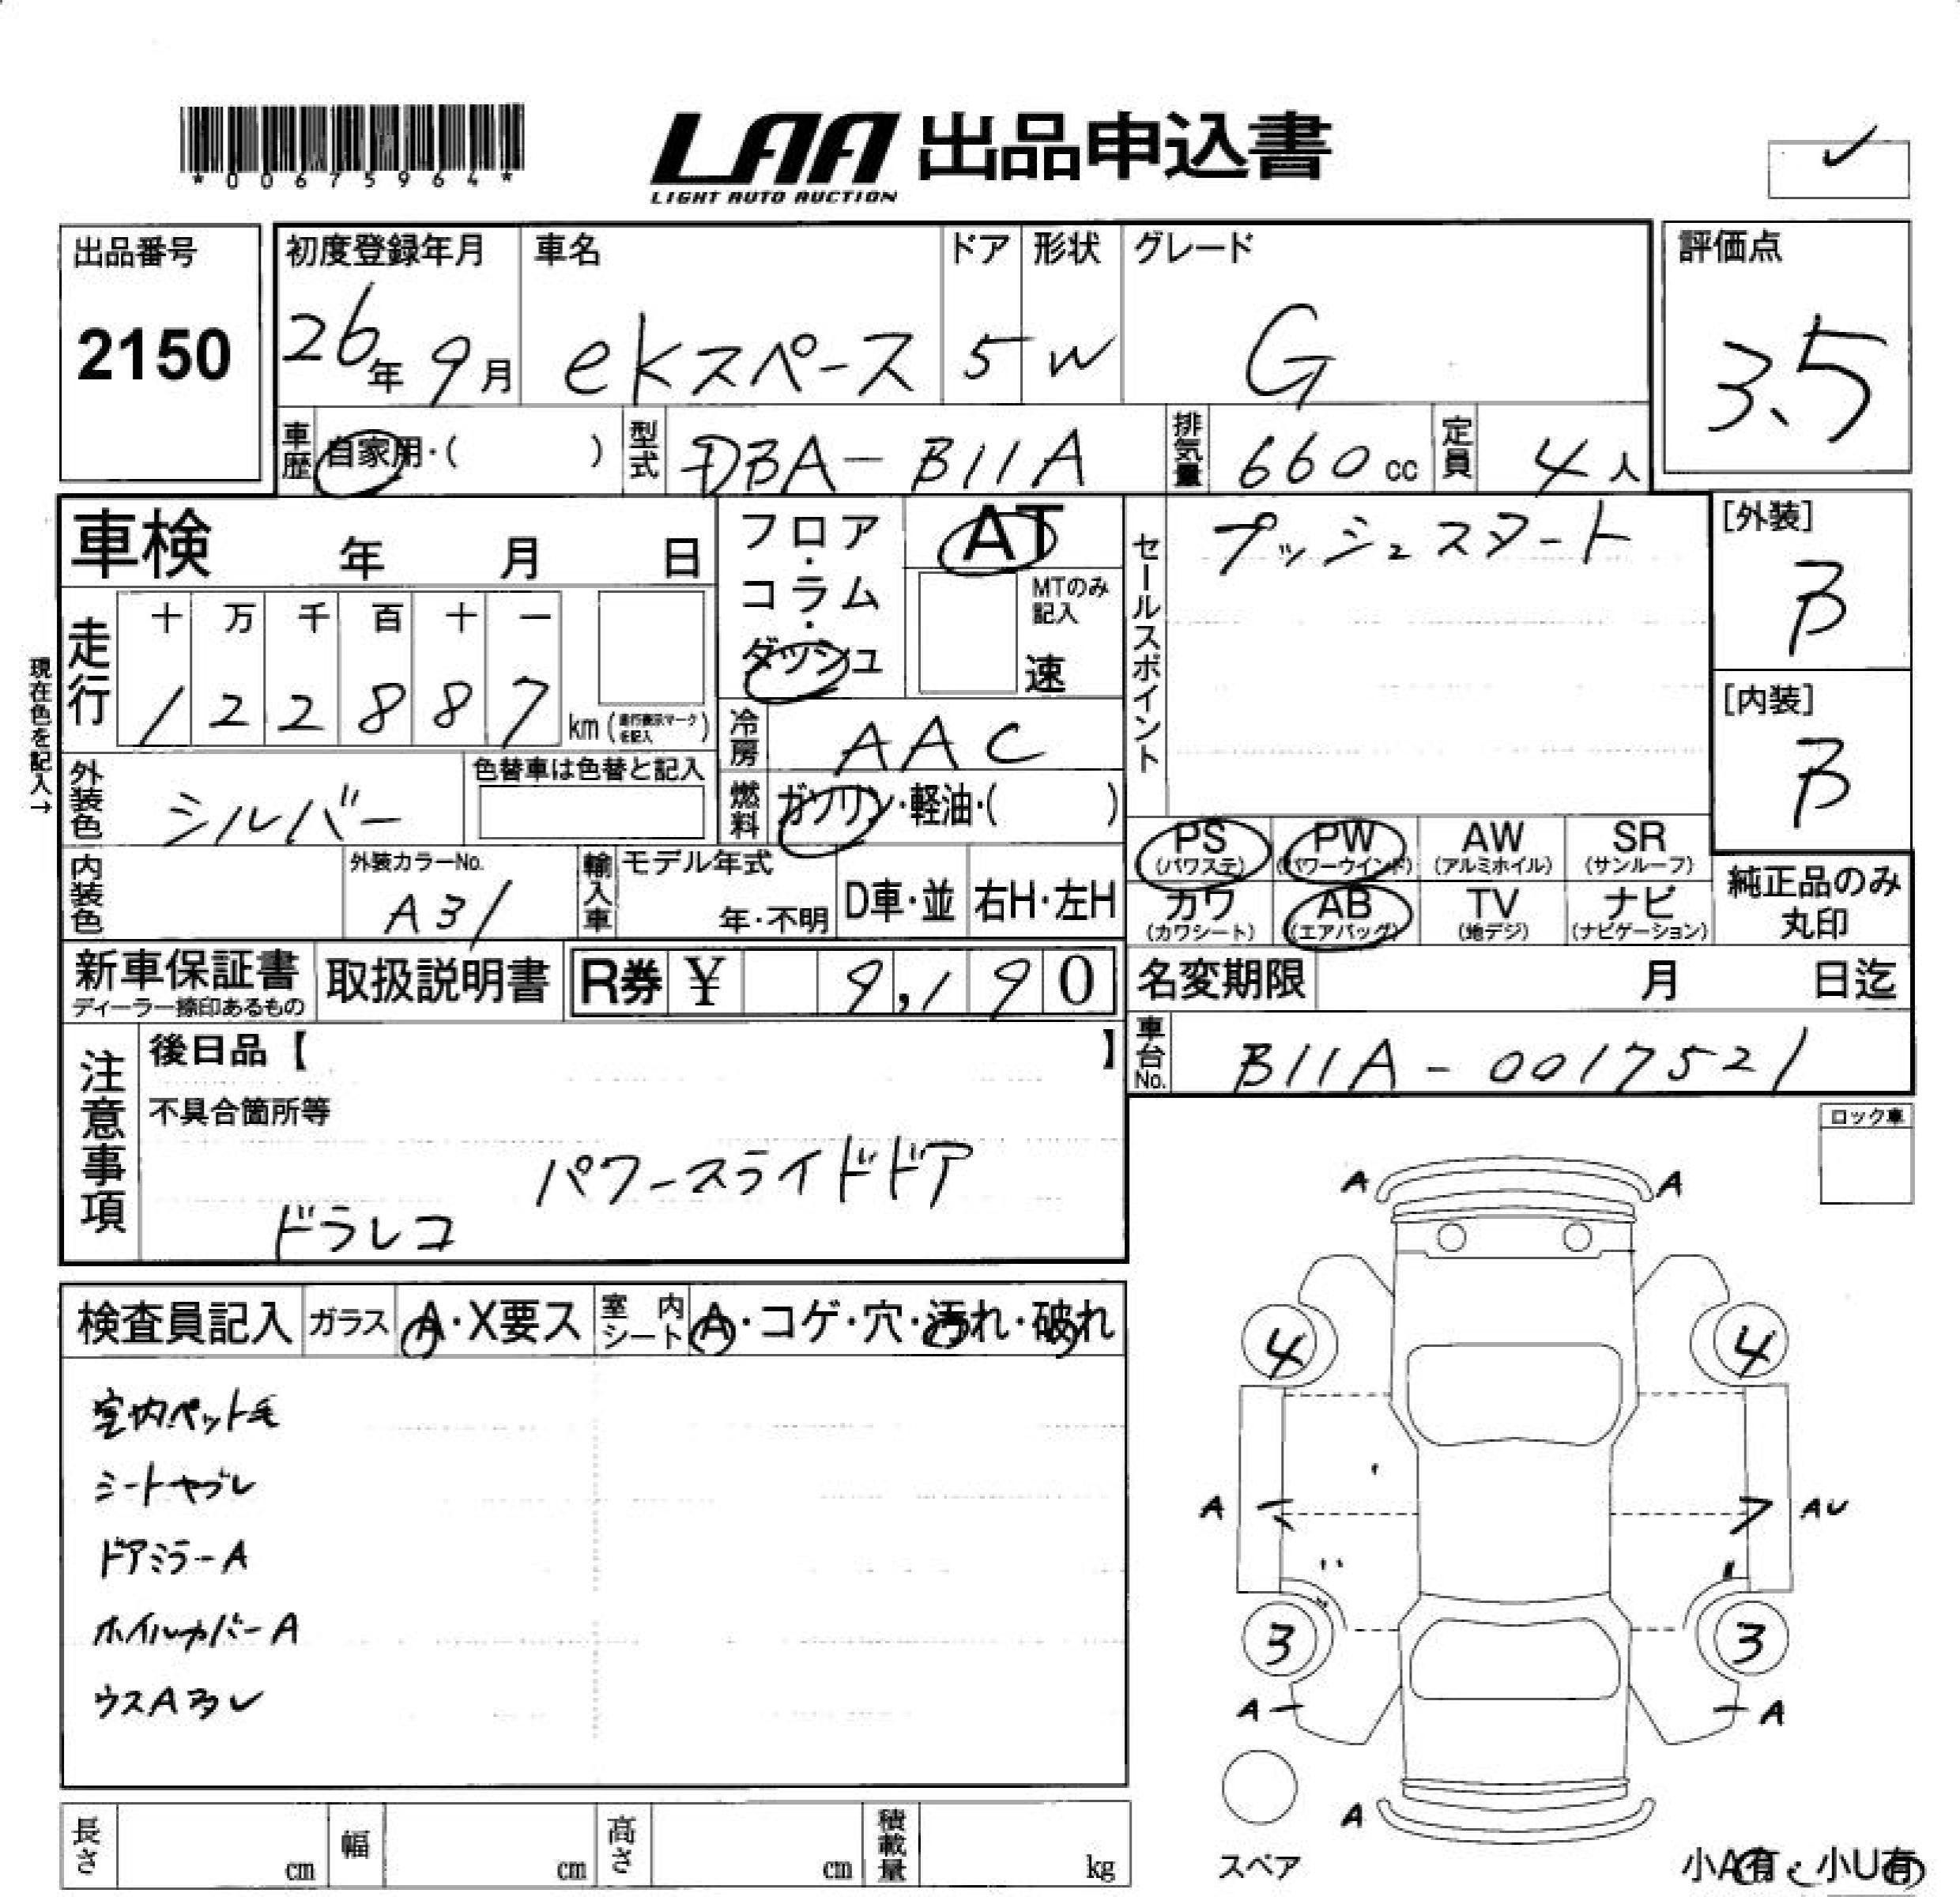 *00675964*
LAA 出品申込書
LIGHT AUTO AUCTION
✓
出品番号
2150
初度登録年月
26年9月
車名
ekスペース
ドア
5
形状
W
グレード
G
評価点
3.5
車歴
自家用・( )
型式
DBA-B11A
排気量
660cc
定員
4人
車検 年 月 日
フロア・コラム・ダッシュ
AT
MTのみ記入
速
セールスポイント
プッシュスタート
[外装]
B
[内装]
B
現在色を記入→
走行
十 万 千 百 十 一
1 2 2 8 8 7
km (走行表示マークを記入)
冷房
AAC
外装色
シルバー
色替車は色替と記入
燃料
ガソリン・軽油・( )
内装色
外装カラーNo.
A31
輸入車
モデル年式
年・不明
D車・並
右H・左H
PS
(パワステ)
PW
(パワーウインド)
AW
(アルミホイル)
SR
(サンルーフ)
カワ
(カワシート)
AB
(エアバッグ)
TV
(地デジ)
ナビ
(ナビゲーション)
純正品のみ
丸印
新車保証書
ディーラー捺印あるもの
取扱説明書
R券 ¥ 9,190
名変期限 月 日迄
車台No.
B11A-0017521
注意事項
後日品【 】
不具合箇所等
パワースライドドア
ドラレコ
ロック車
検査員記入
ガラス
A・X要ス
室内シート
A・コゲ・穴・汚れ・破れ
室内ペット毛
シートヤブレ
ドアミラーA
ホイルカバーA
ウスA多シ
A A
4 4
A AU
3 3
A A
A
スペア
小A有・小U有
長さ cm
幅 cm
高さ cm
積載量 kg